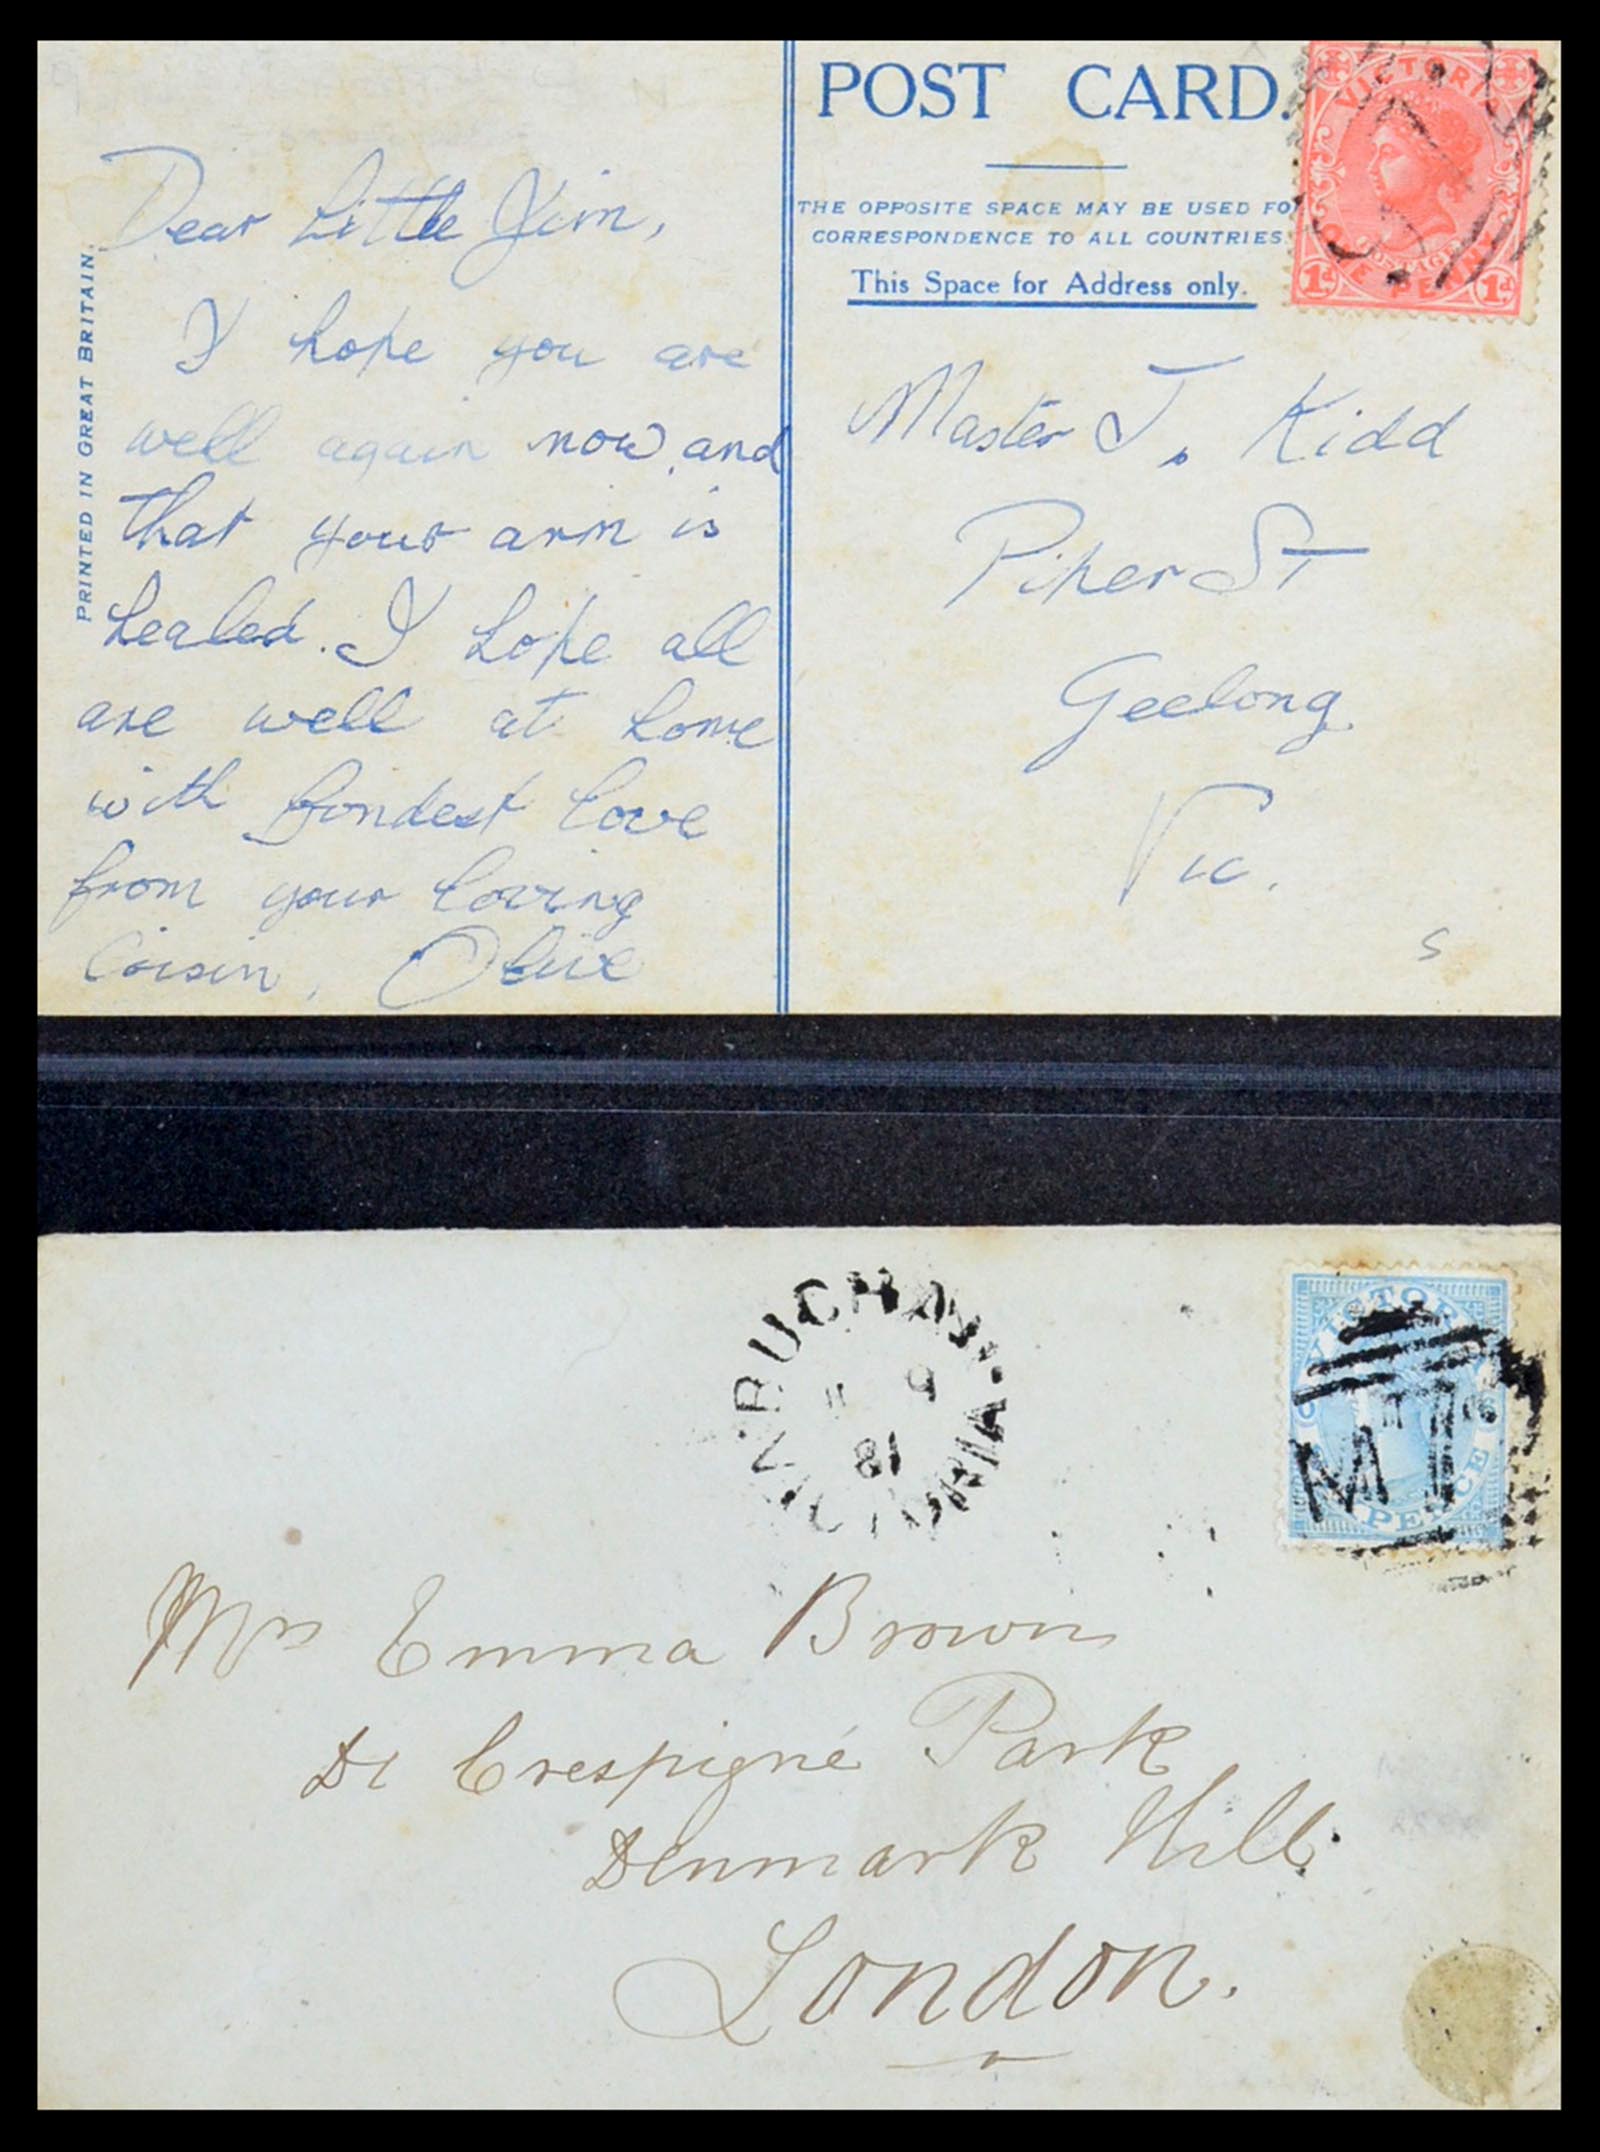 POST CARD.
THE OPPOSITE SPACE MAY BE USED FO
CORRESPONDENCE TO ALL COUNTRIES.
This Space for Address only.
PRINTED IN GREAT BRITAIN.
Dear Little Jim,
I hope you are
well again now, and
that your arm is
healed. I hope all
are well at home
with fondest love
from your loving
Coisin, Olive
VICTORI
ONE PENNY
1d 1d
Master J. Kidd
Piper St
Geelong
Vic.
S
BUCHAN
9
81
VICTORIA
VICTOR
PENCE
Mrs Emma Brown
De Crespigné Park
Denmark Hill
London.